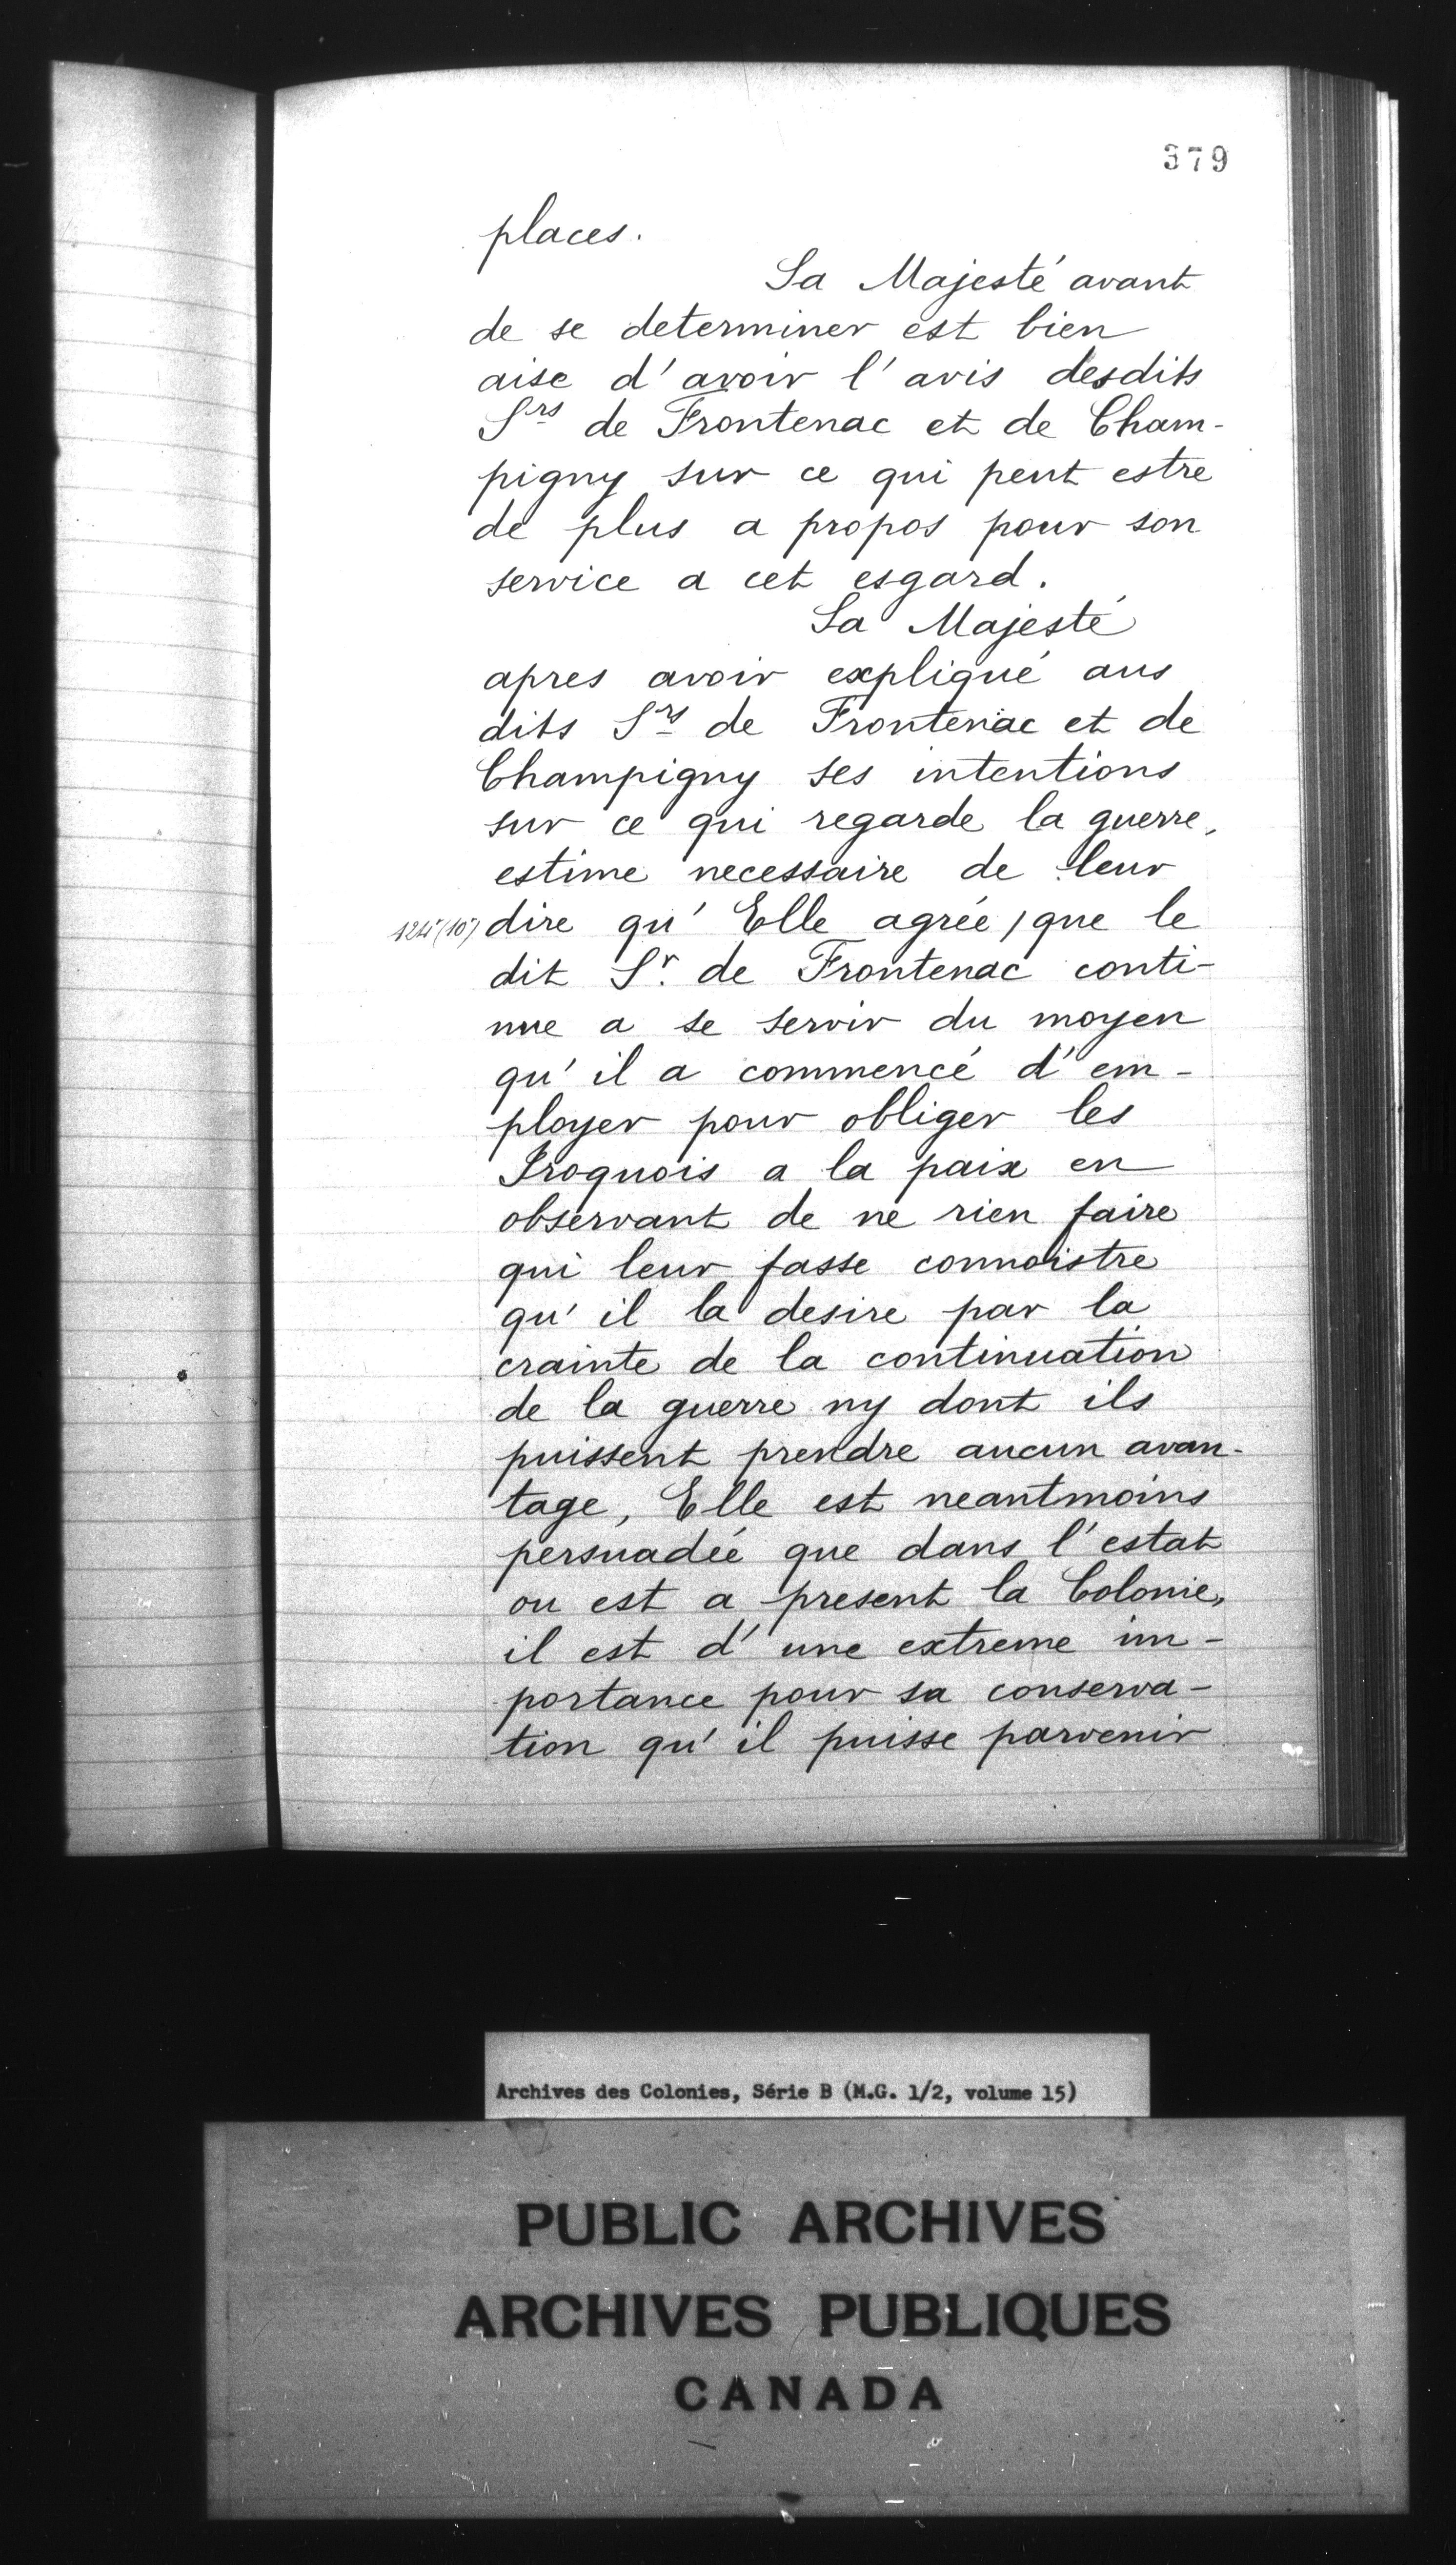 379
places.
Sa Majesté avant
de se determiner est bien
aise d'avoir l'avis desdits
Srs de Frontenac et de Cham-
pigny sur ce qui peut estre
de plus a propos pour son
service a cet esgard.
Sa Majesté
apres avoir expliqué aus
dits Srs de Frontenac et de
Champigny ses intentions
sur ce qui regarde la guerre,
estime necessaire de leur
dire qu'Elle agrée / que le
dit Sr. de Frontenac conti-
nue a se servir du moyen
qu'il a commencé d'em-
ployer pour obliger les
Iroquois a la paix en
observant de ne rien faire
qui leur fasse connoistre
qu'il la desire par la
crainte de la continuation
de la guerre ny dont ils
puissent prendre aucun avan-
tage, Elle est neantmoins
persuadée que dans l'estat
ou est a present la Colonie,
il est d'une extreme im-
portance pour sa conserva-
tion qu'il puisse parvenir
Archives des Colonies, Série B (M.G. 1/2, volume 15)
PUBLIC ARCHIVES
ARCHIVES PUBLIQUES
CANADA